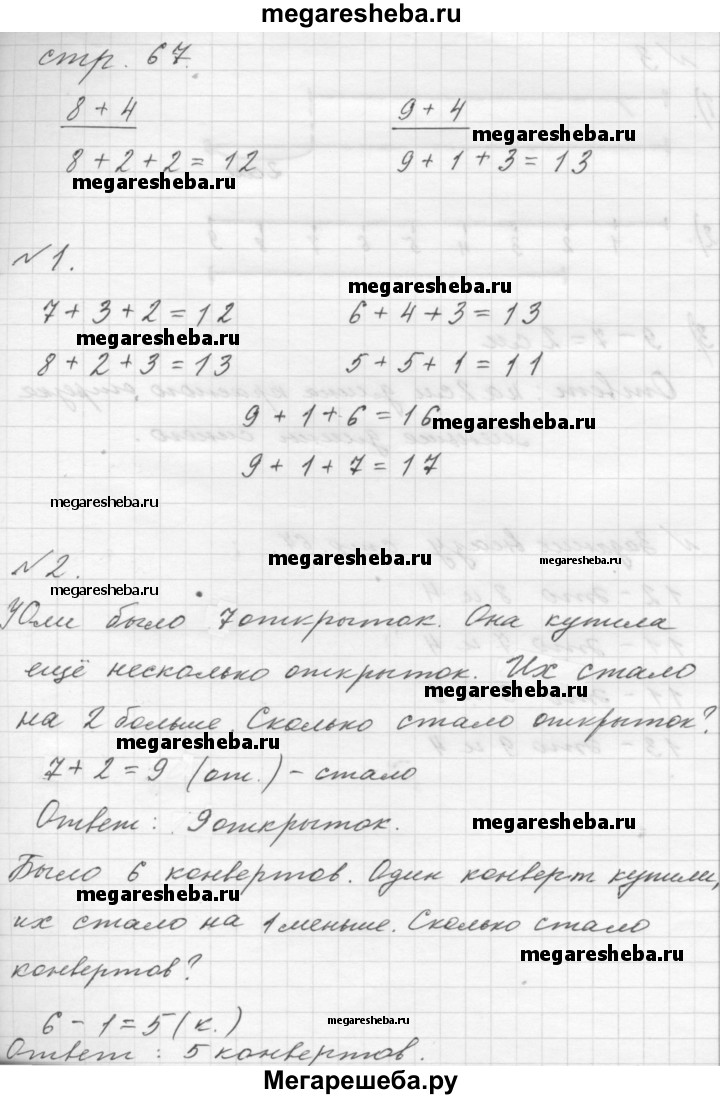 megaresheba.ru
стр. 67.
8 + 4
9 + 4
megaresheba.ru
8 + 2 + 2 = 12
9 + 1 + 3 = 13
megaresheba.ru
megaresheba.ru
№1.
megaresheba.ru
7 + 3 + 2 = 12
6 + 4 + 3 = 13
megaresheba.ru
8 + 2 + 3 = 13
5 + 5 + 1 = 11
9 + 1 + 6 = 16
megaresheba.ru
9 + 1 + 7 = 17
megaresheba.ru
№2.
megaresheba.ru
megaresheba.ru
megaresheba.ru
У Юли было 7 открыток. Она купила
ещё несколько открыток. Их стало
megaresheba.ru
на 2 больше. Сколько стало открыток?
megaresheba.ru
7 + 2 = 9 (от.) - стало
Ответ: 9 открыток.
megaresheba.ru
Было 6 конвертов. Один конверт купили,
megaresheba.ru
их стало на 1 меньше. Сколько стало
megaresheba.ru
конвертов?
6 - 1 = 5 (к.)
megaresheba.ru
Ответ: 5 конвертов.
Мегарешеба.ру